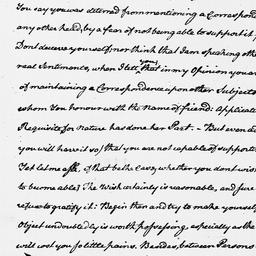 You say you was deterred from mentioning a Correspond
any other head, by a fear of not being able to support it.
Dont deceive yourself nor think that I am speaking oth
real Sentiments, when I tell you that in my Opinion you ar
of maintaining a Correspondence upon other Subjects
whom You honour with the Name of friend: Applicat
Requisite for Nature has done her Part. - But even al
you will have it so) that you are not capable of suppor
Yet let me ask, if that be the Case, whether you dont wis
to become able? The Wish certainly is reasonable, and sure
refuse to gratify it: Begin then and try to make yoursel
Object undoubtedly is worth possessing, especially as the
will cost you so little pains. Besides, between Persons